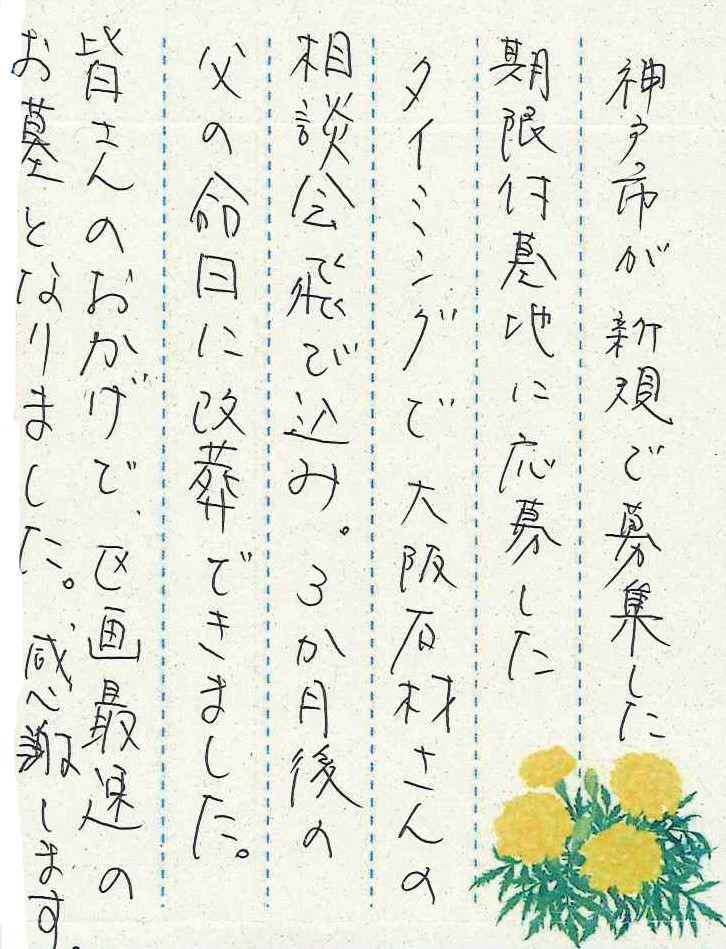 神戸市が新規で募集した
期限付墓地に応募した
タイミングで大阪石材さんの
相談会飛び込み。3か月後の
父の命日に改葬できました。
皆さんのおかげで、区画最速の
お墓となりました。感謝します。